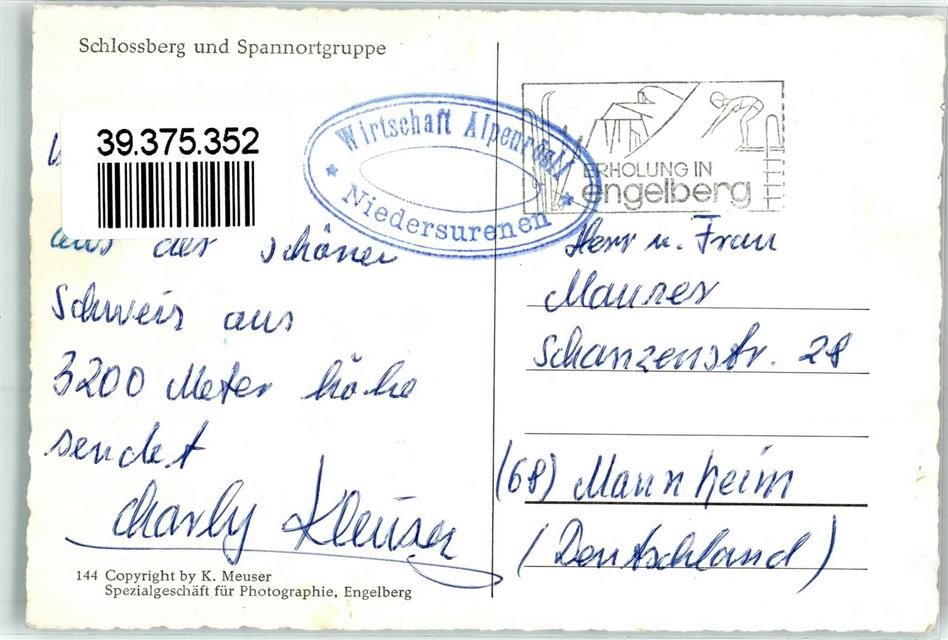 Schlossberg und Spannortgruppe
39.375.352
aus der schönen
Schweiz aus
3200 Meter höhe
sendet
Charly Kleuser
144 Copyright by K. Meuser
Spezialgeschäft für Photographie, Engelberg
* Wirtschaft Alpenrösli *
Niedersurenen
ERHOLUNG IN
engelberg
Herr u. Frau
Maurer
Schanzenstr. 28
(68) Mannheim
(Deutschland)